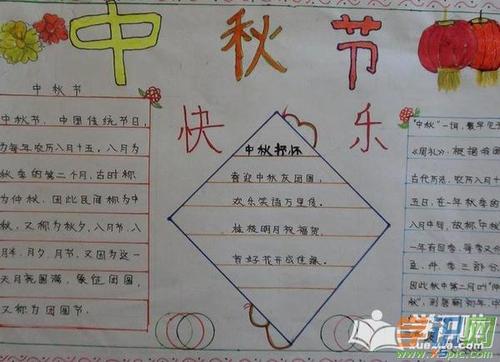 中秋节
快乐
中秋节
中秋节,中国传统节日,
为每年农历八月十五,八月为
秋季的第二个月,古时称
为仲秋,因此民间称为中
秋,又称为秋夕,八月节,八月
半,月夕,月节,又因为这一
天月亮圆满,象征团圆,
又称为团圆节.
中秋抒怀
喜迎中秋友团圆,
欢乐笑语万里传.
桂枝明月祝福
花开
"中秋"一词,最早见于
《周礼》.根据
古代历法,农历八月十
五日,在一年秋季的
八月中旬,故称"中秋"
一年有四季,每季又分
孟、仲、季三部
因此秋中第二月叫"仲
秋"
学识网
www.xuexila.com